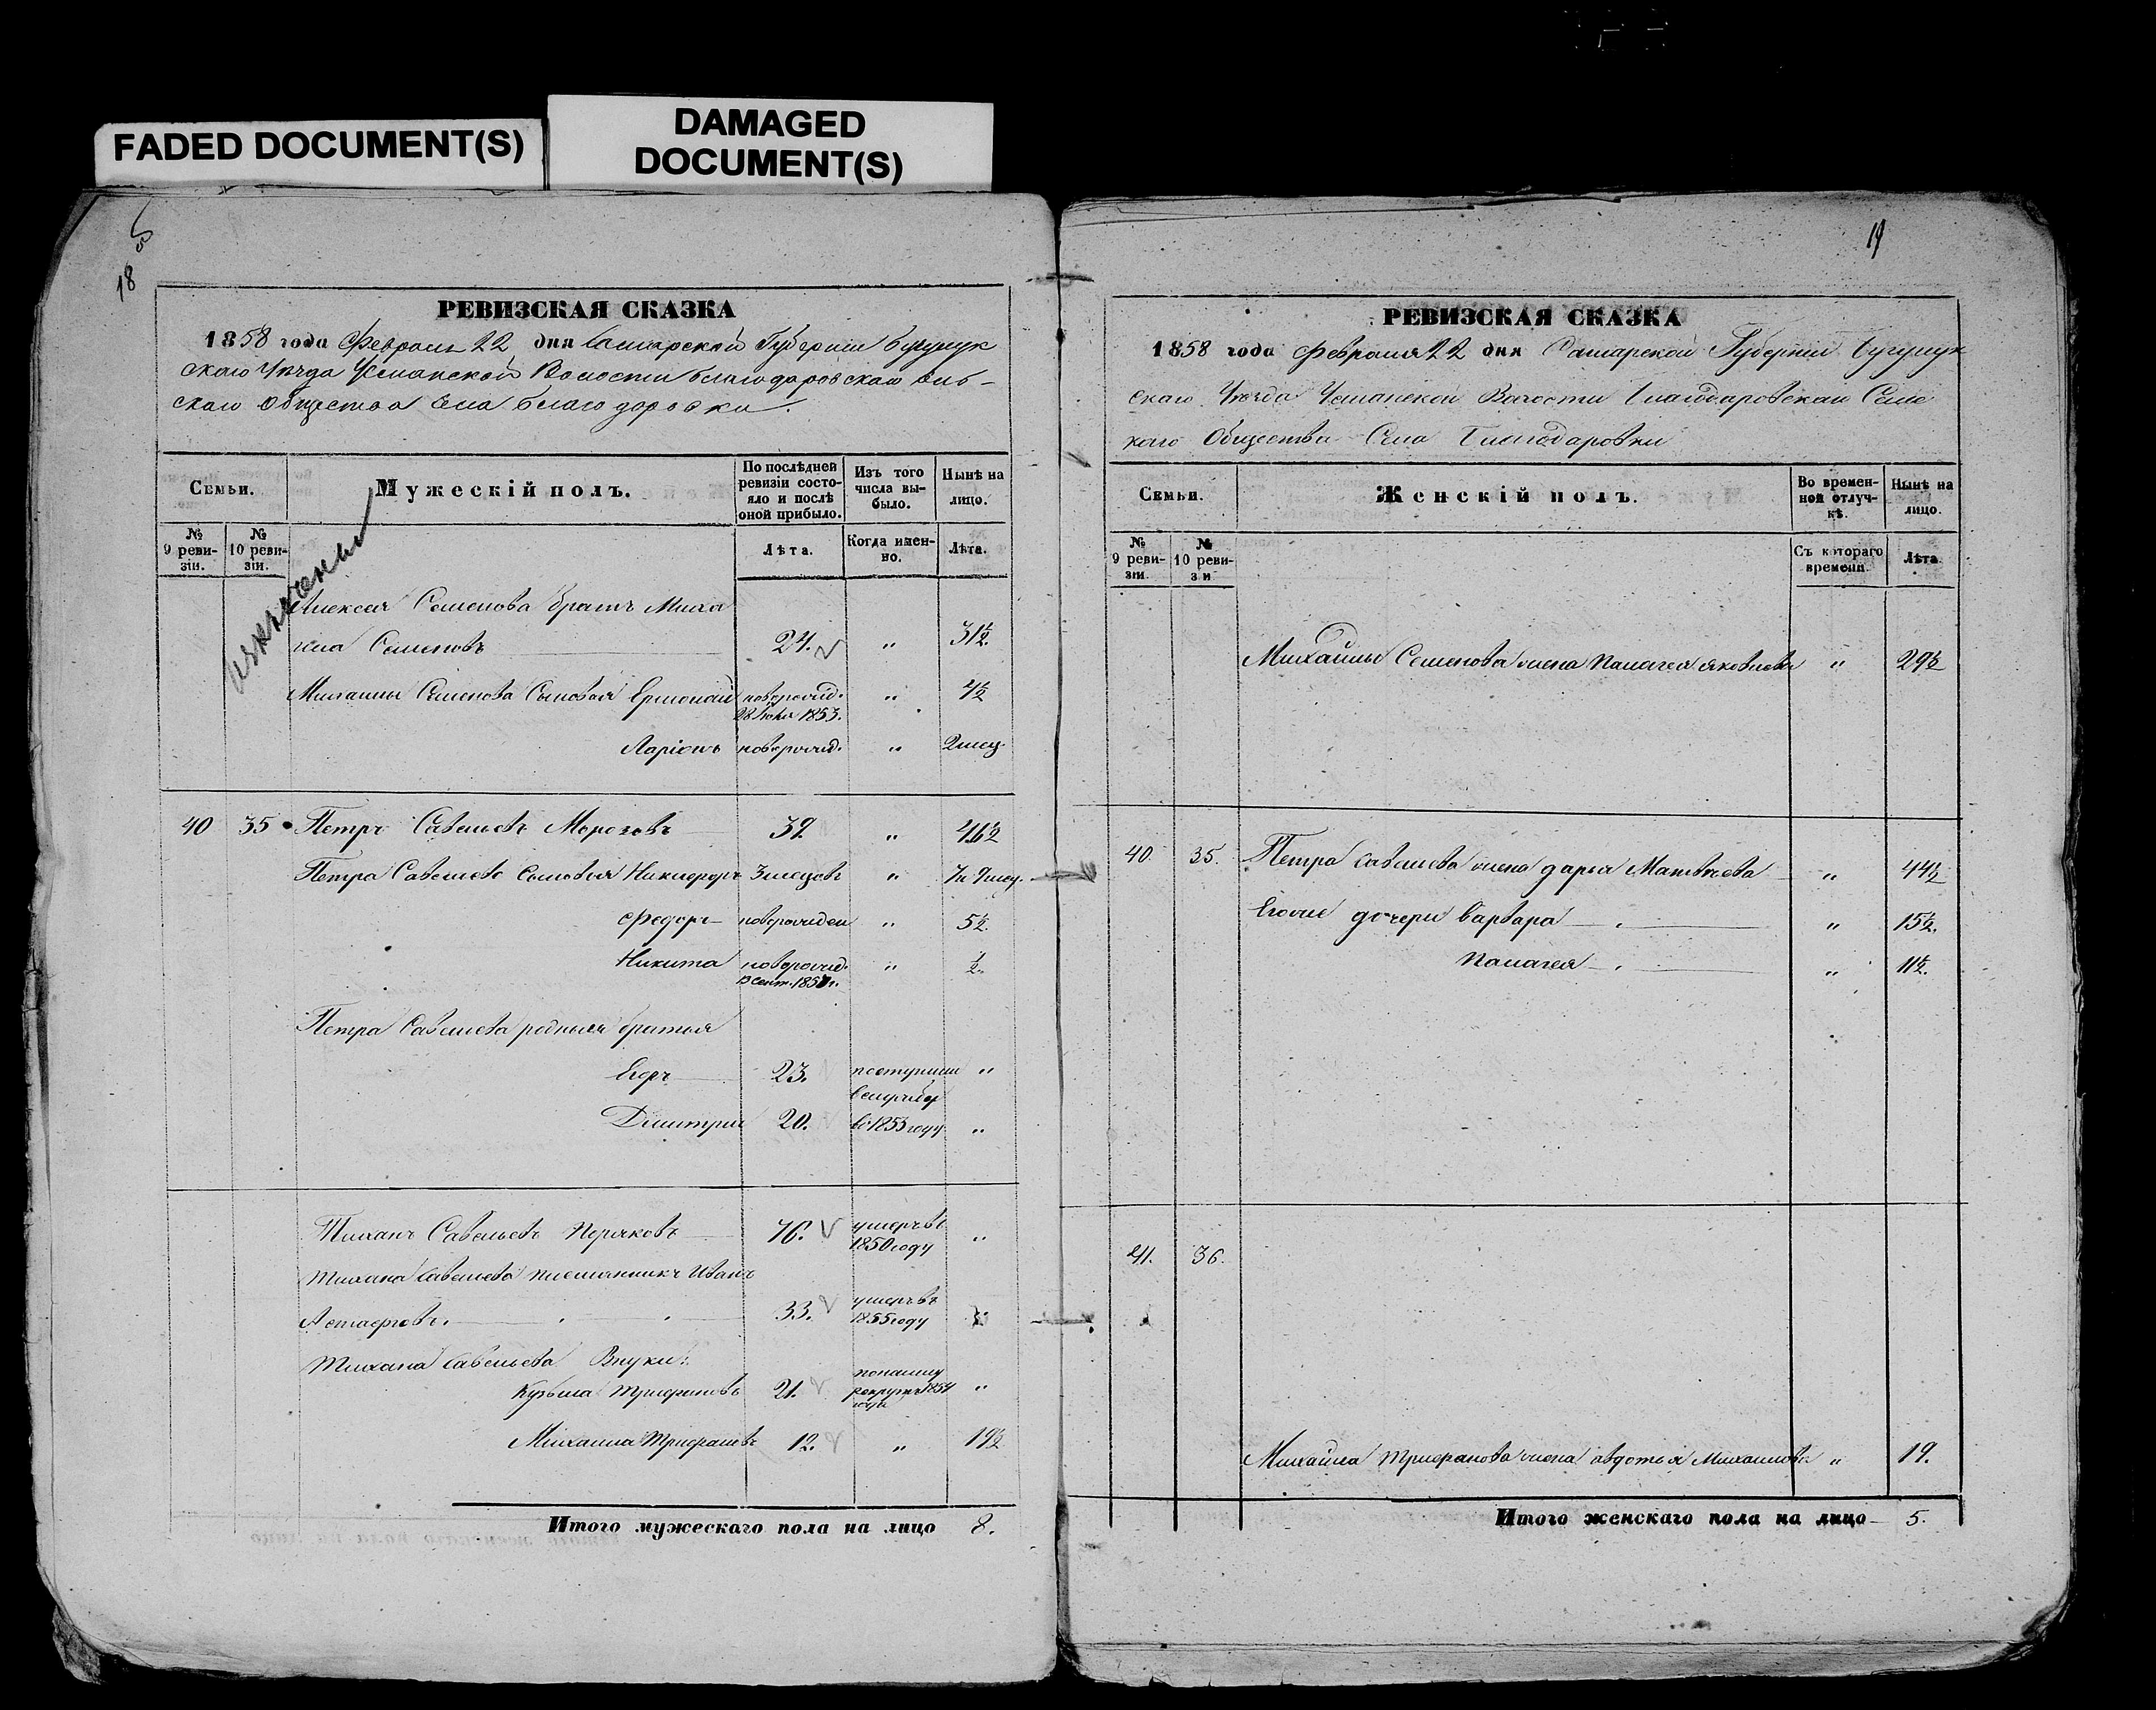 FADED DOCUMENT(S)
DAMAGED
DOCUMENT(S)
18
РЕВИЗСКАЯ СКАЗКА
1858 года Февраля 22 дня Самарской Губернии Бугурук
скаго Уѣзда Усманской Волости благодаровскаго
скаго Общества Села благодоровки.
Семьи.
Мужескій полъ.
По послѣдней
ревизіи состо-
яло и послѣ
оной прибыло.
Изъ того
числа вы-
было.
Нынѣ на
лицо.
№
9 реви-
зіи.
№
10 реви-
зіи.
Лѣта.
Когда имен-
но.
Лѣта.
Алексея Семенова братъ Миха
ила Семеновъ 24. „ 31½.
Михаилы Семенова Сыновья Ермолай новорожд. „ 4½
28 1853.
Ларіонъ новорожд. „ 2 мец.
40 35 Петръ Савельевъ Морозовъ 39. „ 46½
Петра Савельева Сыновья Никифоръ 3 мецовъ „ 7 и 9 мец.
Федоръ новорожден „ 5½.
Никита новорожд. „ ½.
13 Сент. 1857 г.
Петра Савельева родныя братья
Егоръ 23. поступили „
в службу
Дмитрий 20. в 1853 году „
Тиханъ Савельевъ 76. умеръ в „
1850 году
Тихана Савельева племянникъ Иванъ
Астафьевъ. 33. умеръ въ
1855 году
Тихана Савельева Внуки:
Кузьма Трифановъ 21. „
рекрутъ 1854
года
Михаила Трифановъ 12. „ 19½
Итого мужескаго пола на лицо 8.
19
РЕВИЗСКАЯ СКАЗКА
1858 года Февраля 22 дня Самарской Губернии Бугурук
скаго Уѣзда Усманской Волости Благодаровскаго Сель
каго Общества Села Благодаровки
Семьи.
Женскій полъ.
Во времен-
ной отлуч-
кѣ.
Нынѣ на
лицо.
№
9 реви-
зіи.
№
10 реви-
зи
Съ котораго
времени.
Лѣта.
Михайлы Семенова жена Палагея яковлева „ 29½
40. 35. Петра Савелева жена дарья Матвѣева „ 44½
Егоже дочери Варвара „ 15½.
Палагея „ 11½.
41. 36.
Михайла Трифанова жена авдотья Михайлова „ 19.
Итого женскаго пола на лицо 5.